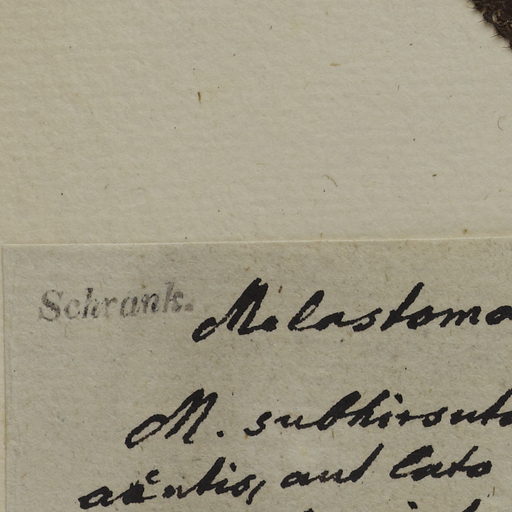 Schrank. Melastoma
M. subhirsuta
aut lato